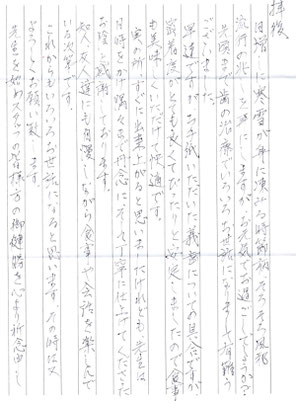 拝復
日増しに寒雪が身に凍みる時節柄、そろそろ風邪
流行の兆しの中ですがお元気でお過ごしでしょうか?
先頃まで歯の治療でいろいろお世話になりまして有難う
ございました。
早速ですがお手紙いただいた義歯についての具合ですが
装着感がとても良くてぴたりと安定しましたので食事
も美味しくいただけて快適です。
実の所、すぐに出来上がると思いましたけれども先生は
日時をかけ隅々まで丹念にそして丁寧に仕上げてくださった
お陰と感謝しております。
知人友人達にも自慢しながら食事や会話を楽しんで
いる次第です。
これからもいろいろお世話になると思います。その時は又
よろしくお願い致します。
先生を始めスタッフの皆様方の御健勝を心より祈念申し